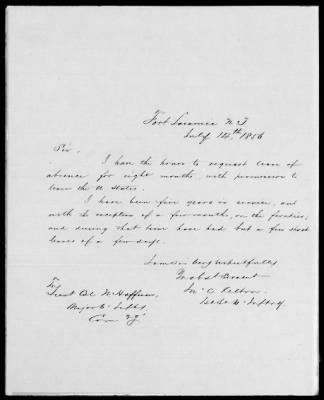 Fort Laramie N.T.
July 14th 1856
Sir,
I have the honor to request leave of
absence for eight months, with permission to
leave the U States.
I have been five years in service, and
with the exception of a few months, on the frontier;
and during that time have had but a few short
leaves of a few days.
I am Sir Very respectfully
Yr obt Servant
Jno C Kelton
To
Lieut Col W Hoffman,
Major 6th Infty
Com'g